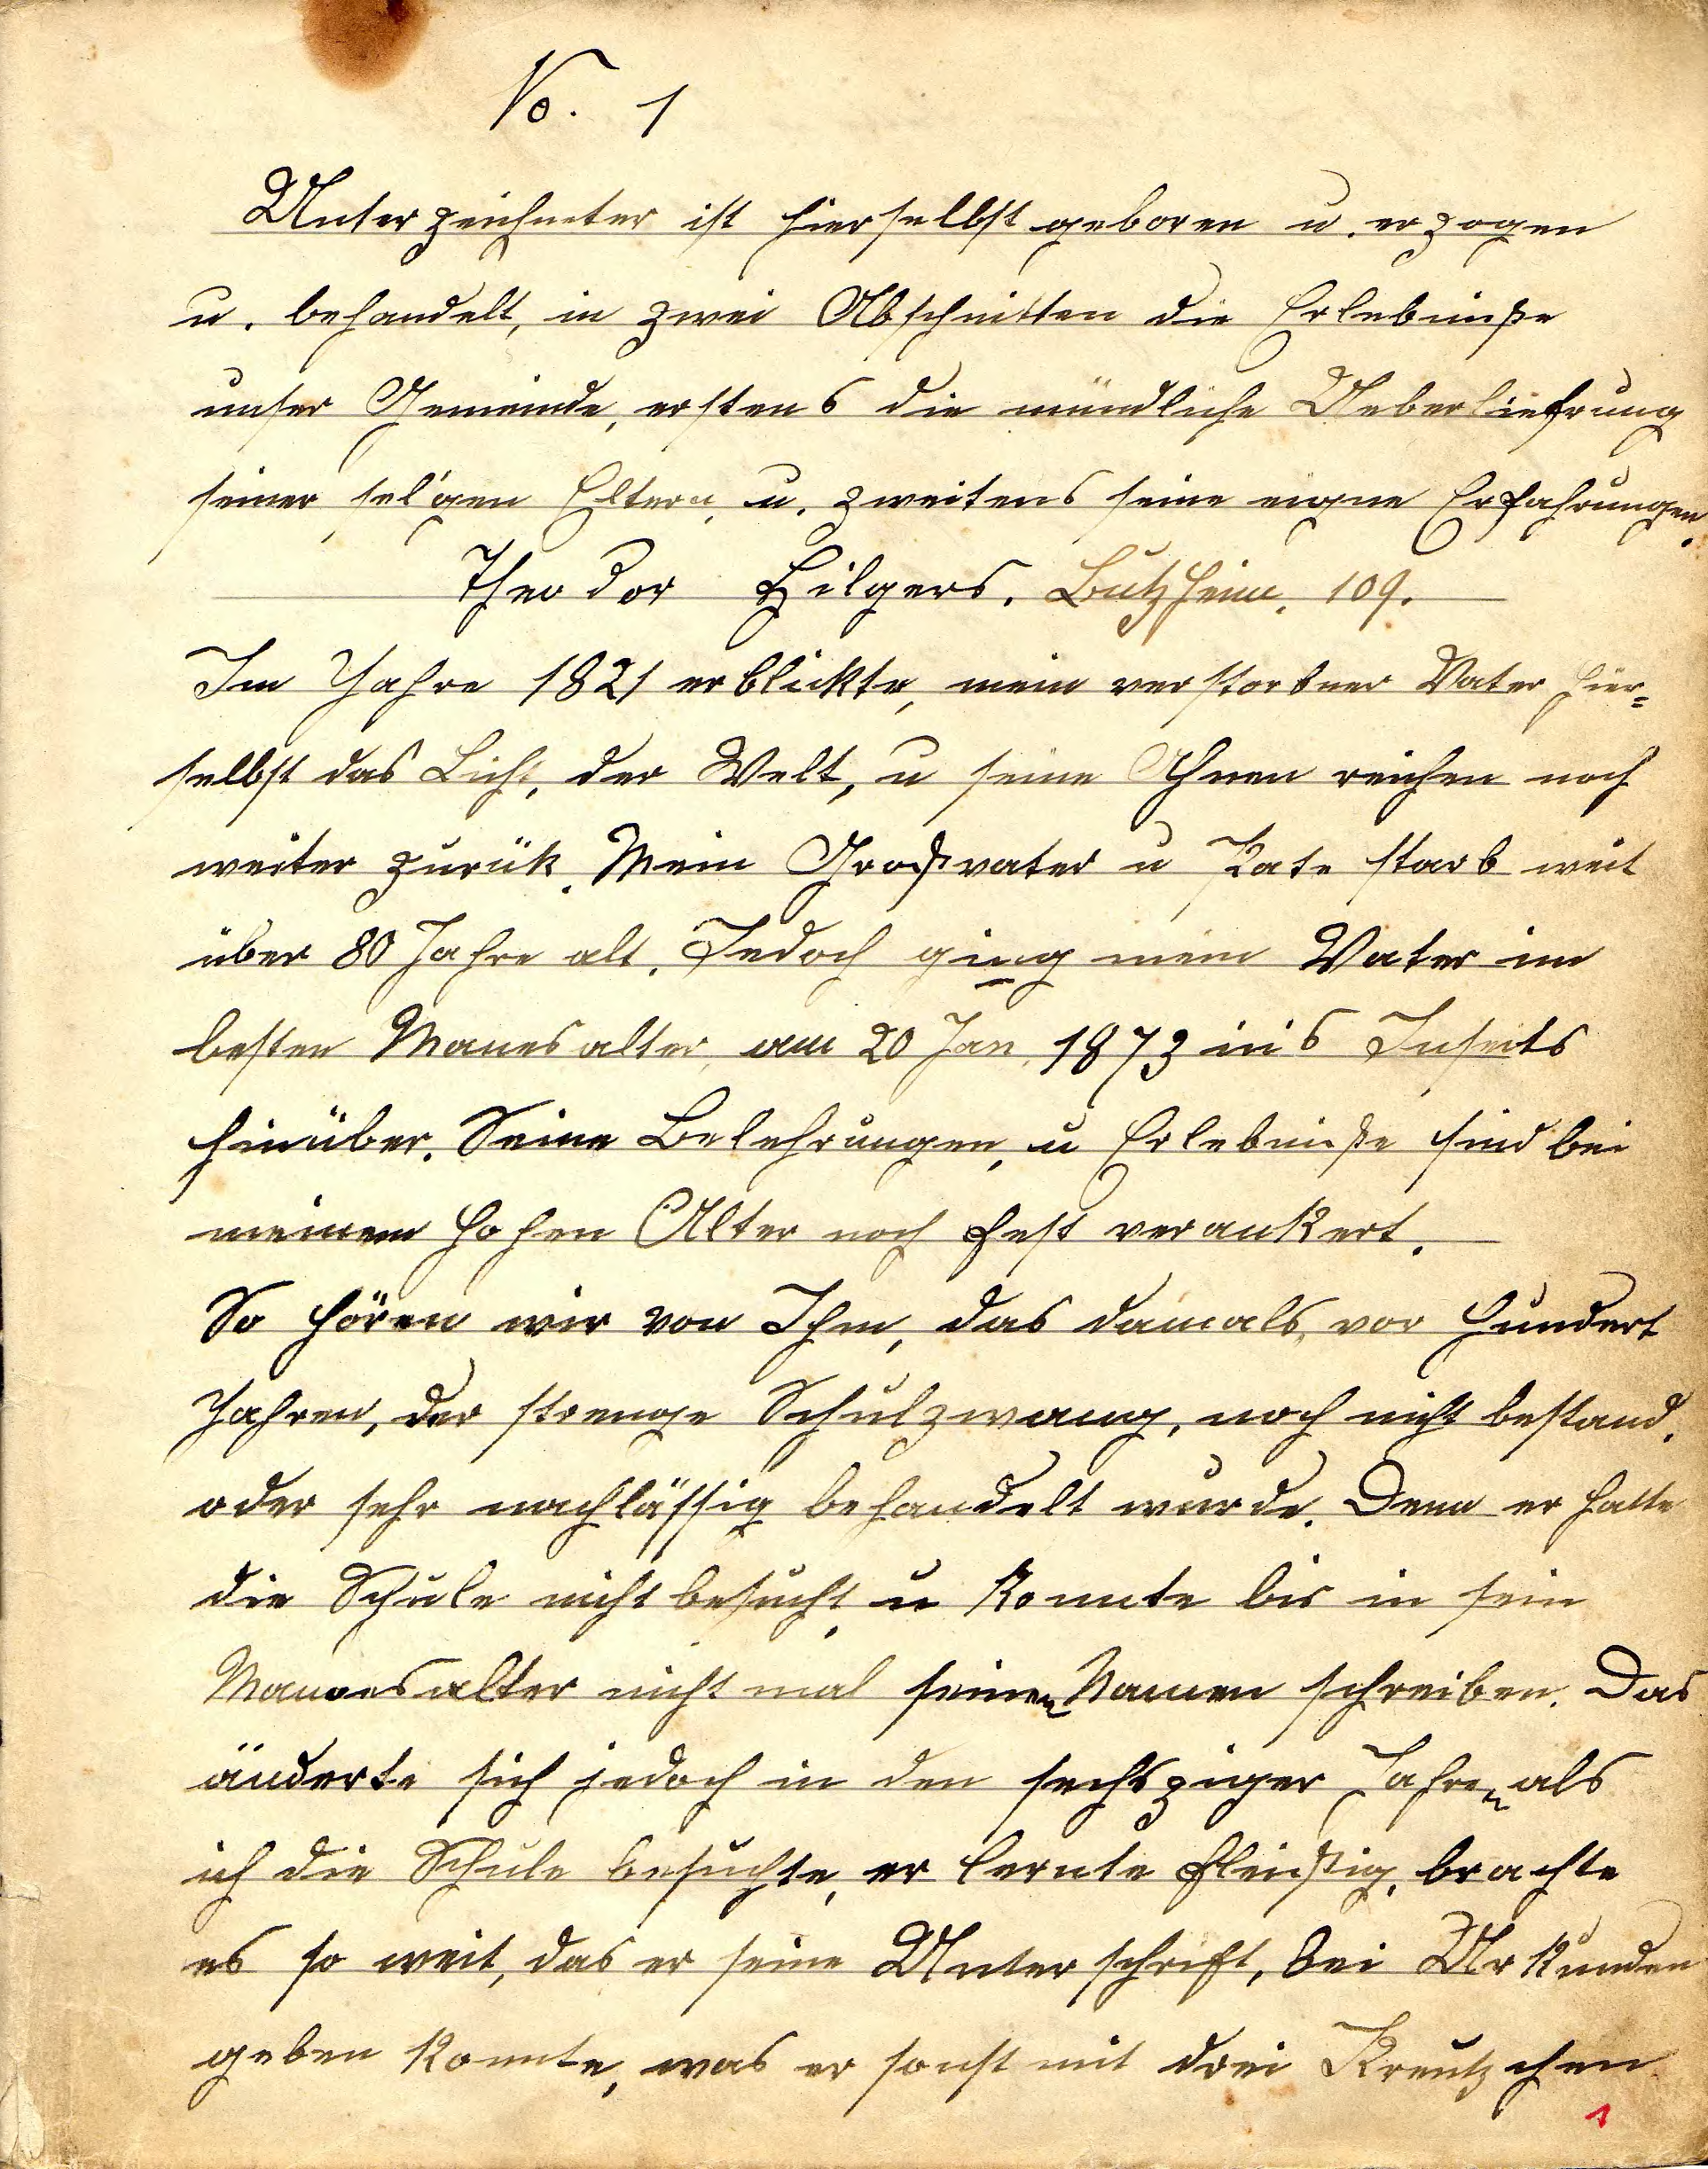 No. 1
Unterzeichneter ist hierselbst geboren u. erzogen
u. behandelt, in zwei Abschnitten die Erlebniße
unser Gemeinde, erstens die mündliche Ueberliefrung
seiner sel'gen Eltern, u. zweitens seine eigne Erfahrungen.
Theodor Hilgers. Butzheim. 109.
Im Jahre 1821 erblikte, mein verstorbner Vater hier=
selbst das Licht, der Welt, u seine Ahnen reichen noch
weiter zurük. Mein Großvater u Pate starb weit
über 80 Jahre alt. Jedoch ging mein Vater im
besten Manesalter, am 20 Jan. 1873 in's Jnseits
hinüber. Seine Belehrungen, u Erlebniße sind bei
meinem hohen Alter noch fest verankert.
So hören wir von Ihm, das damals, vor hundert
Jahren, der strenge Schulzwang, noch nicht bestand.
oder sehr nachlässig behandelt wurde. Denn er hatte
die Schule nicht besucht, u konnte bis in sein
Mannesalter nicht mal seinen Namen schreiben. Das
änderte sich jedoch in den sechsziger Jahren als
ich die Schule besuchte, er lernte fleißig, brachte
es so weit, das er seine Unterschrift, bei Urkunden
geben konnte, was er sonst mit drei Kreutzchen
1